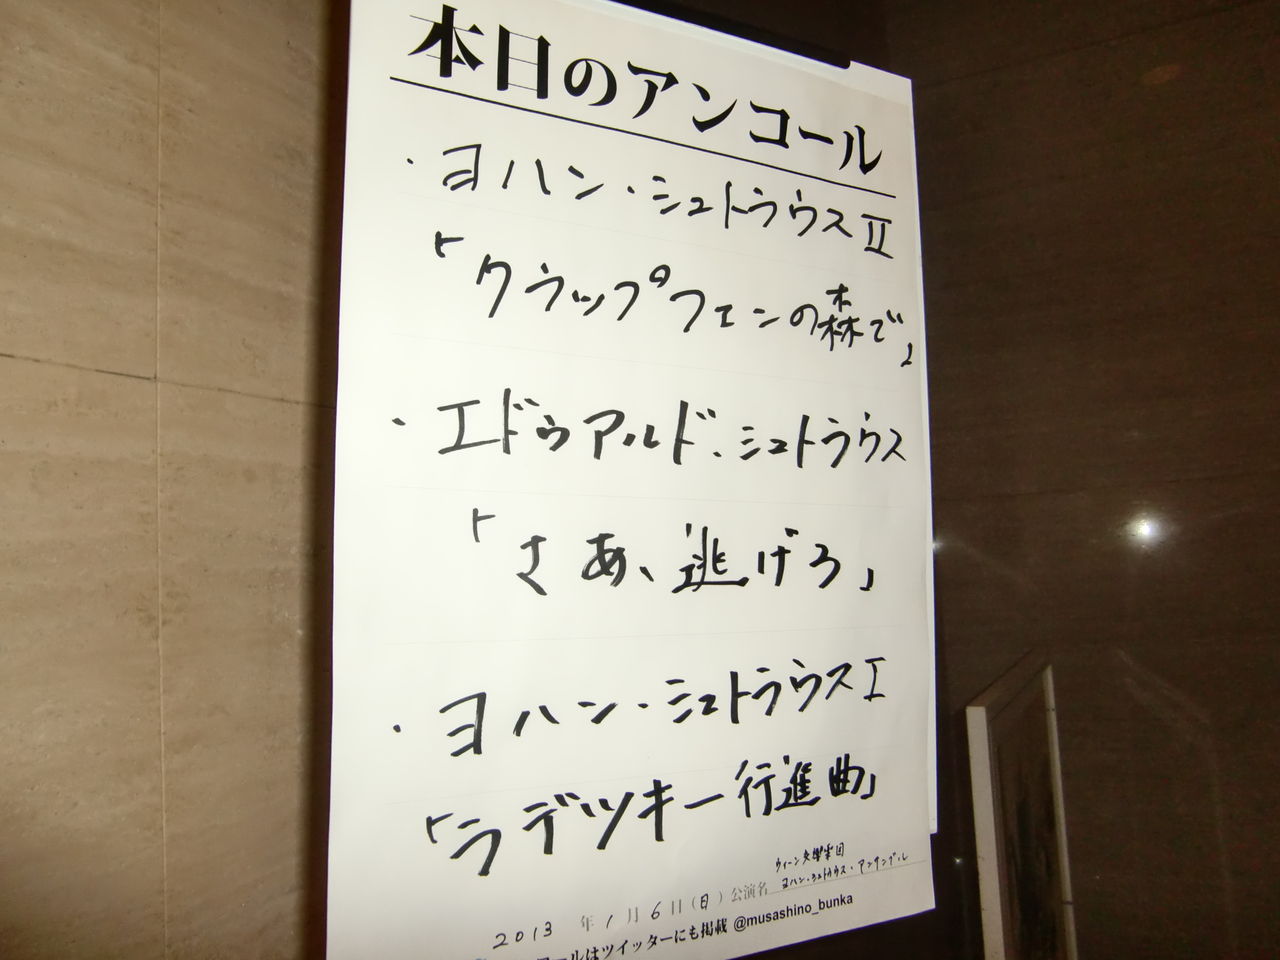 本日のアンコール
・ヨハン・シュトラウスⅡ
「クラップフェンの森で」
・エドゥアルド・シュトラウス
「さあ、逃げろ」
・ヨハン・シュトラウスⅠ
「ラデツキー行進曲」
ウィーン交響楽団
2013年1月6日(日)公演名 ヨハン・シュトラウス・アンサンブル
コールはツイッターにも掲載 @musashino_bunka